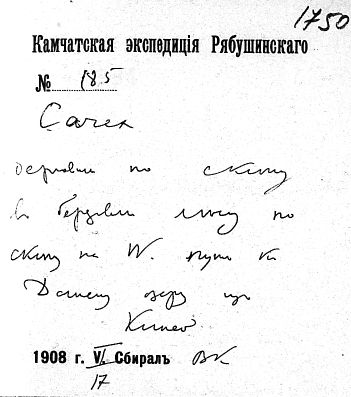 1750
Камчатская экспедиція Рябушинскаго
№ 185
Сачек
по склону
в березовом лесу по
склону на W. пути к
Дальнему озеру
1908 г. VI. Сбиралъ ВК
17